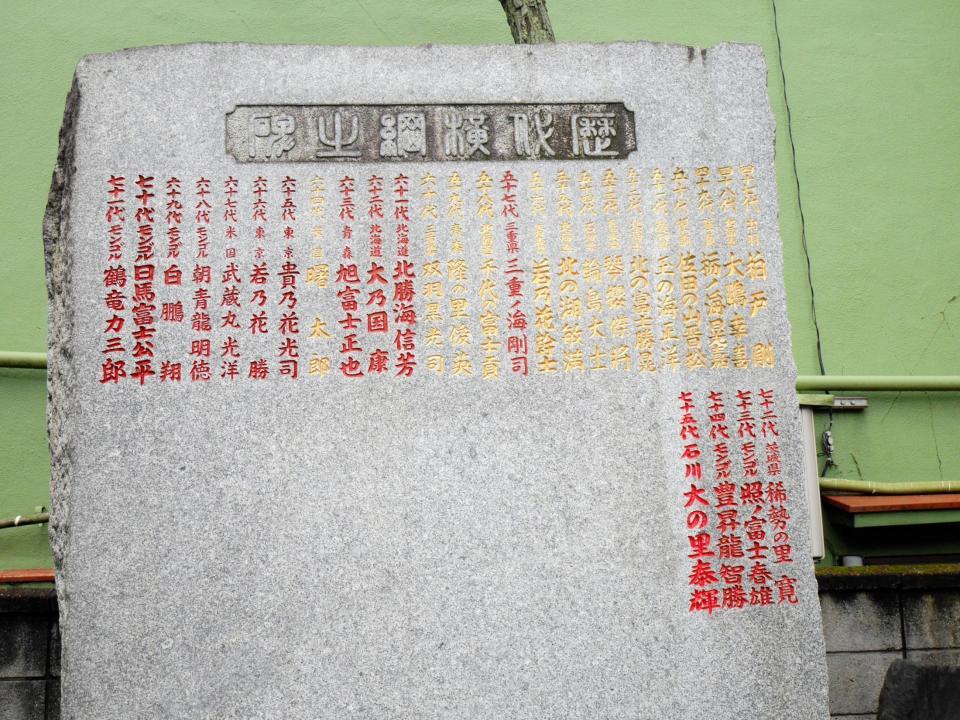 歴代横綱之碑
四十七代 柏戸 剛
四十八代 大鵬幸喜
四十九代 栃ノ海晃嘉
五十代 佐田の山晋松
五十一代 玉の海正洋
五十二代 北の富士勝晃
五十三代 琴櫻傑将
五十四代 輪島大士
五十五代 北の湖敏満
五十六代 若乃花幹士
五十七代 三重県 三重ノ海剛司
五十八代 千代の富士貢
五十九代 隆の里俊英
六十代 三重県 双羽黒光司
六十一代 北海道 北勝海信芳
六十二代 北海道 大乃国 康
六十三代 青森 旭富士正也
六十四代 米国 曙 太郎
六十五代 東京 貴乃花光司
六十六代 東京 若乃花 勝
六十七代 米国 武蔵丸光洋
六十八代 モンゴル 朝青龍明徳
六十九代 モンゴル 白鵬 翔
七十代 モンゴル 日馬富士公平
七十一代 モンゴル 鶴竜力三郎
七十二代 茨城県 稀勢の里 寛
七十三代 モンゴル 照ノ富士春雄
七十四代 モンゴル 豊昇龍智勝
七十五代 石川 大の里泰輝